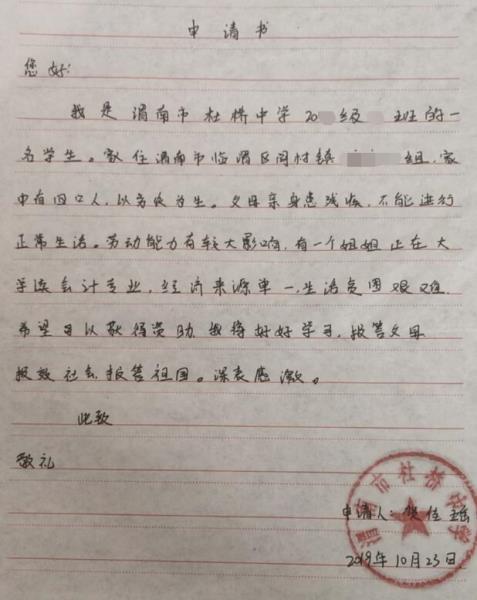 申请书
您好:
我是渭南市杜桥中学20 级 班的一
名学生。家住渭南市临渭区阎村镇 组,家
中有四口人,以务农为生。父母亲身患残疾,不能进行
正常生活。劳动能力有较大影响,有一个姐姐正在大
学读会计专业,经济来源单一,生活竟困艰难.
希望可以获得资助,我将好好学习,报答父母
报效社会,报答祖国。深表感激。
此致
敬礼
渭南市杜桥中学
申请人: 佳
2019年10月23日